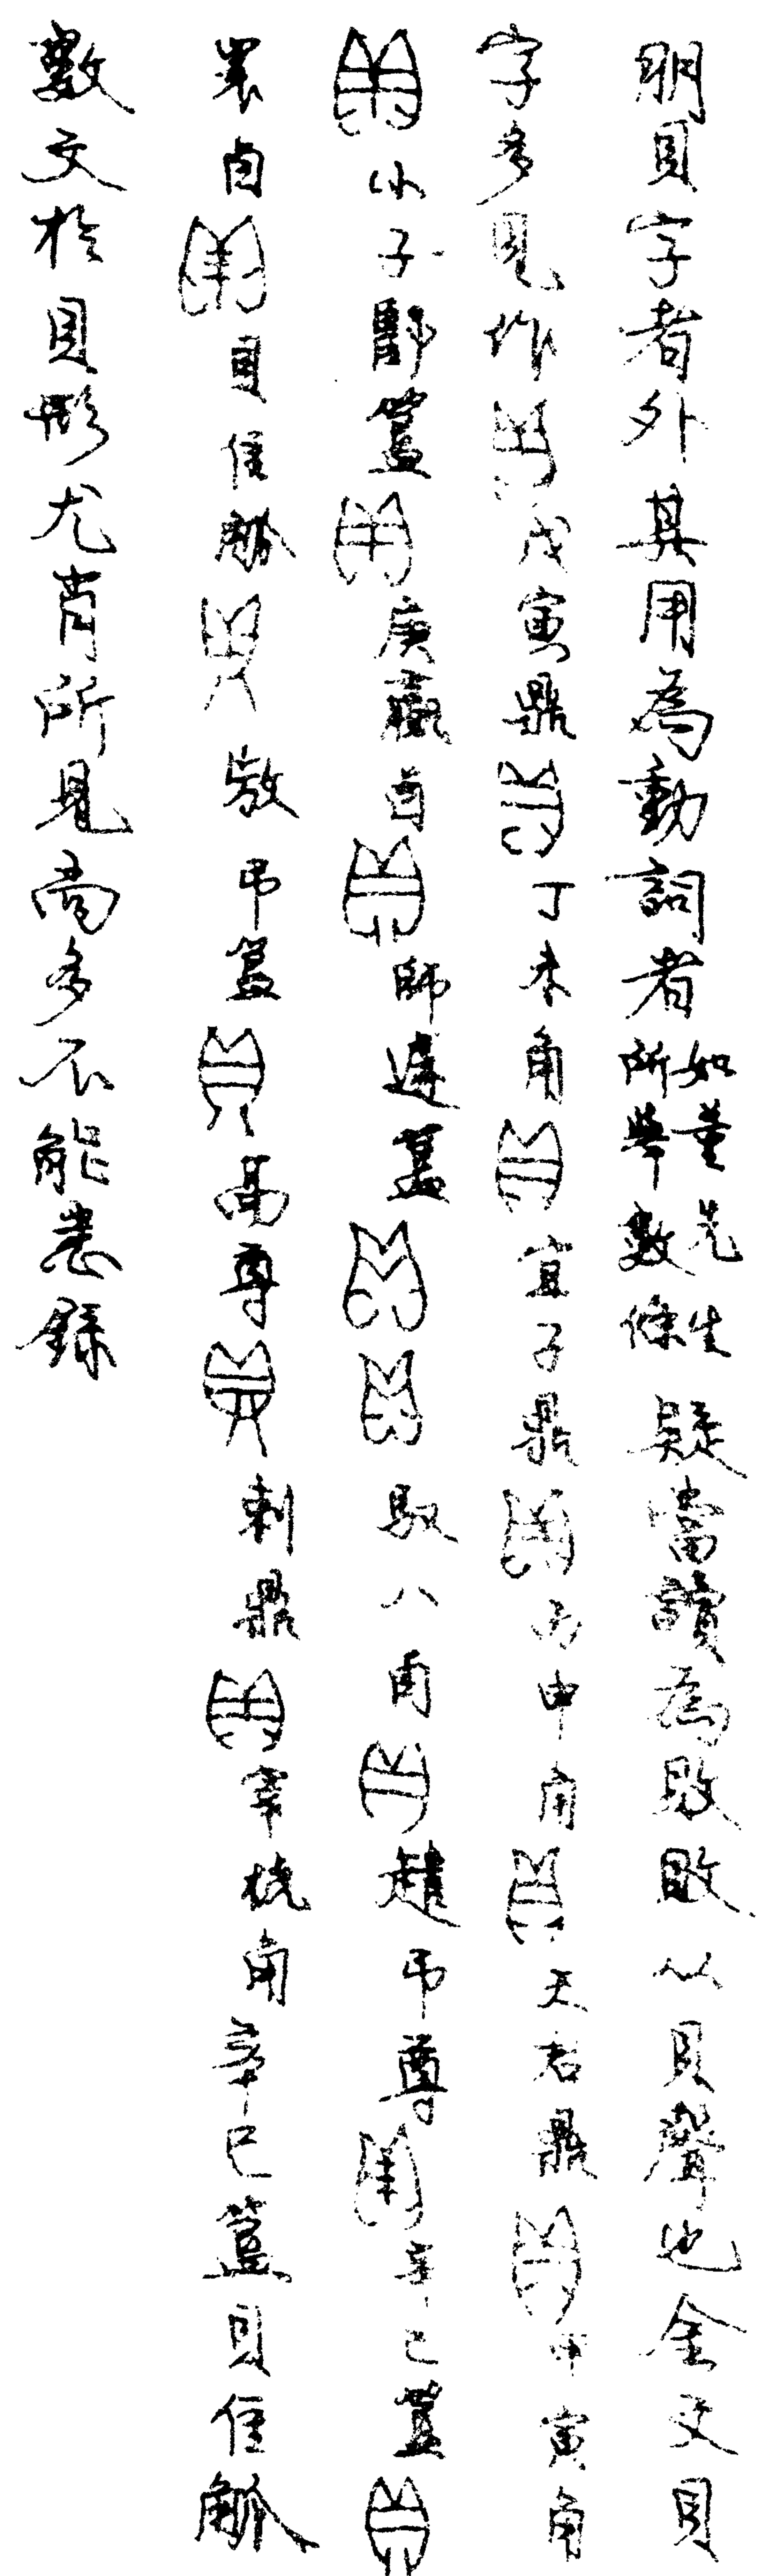 朋貝字者外其用為動詞者如董先生所舉數條疑當讀為敗敗以貝聲也金文貝
字多見作戊寅鼎丁未角宜子鼎丙申角天君鼎甲寅角
小子簋庚嬴卣師遽簋馭八卣趞弔尊辛巳簋
卣貝隹觶弔簋尊剌鼎宰椃角辛巳簋貝隹觶
數文於貝形尤肖所見尚多不能悉錄